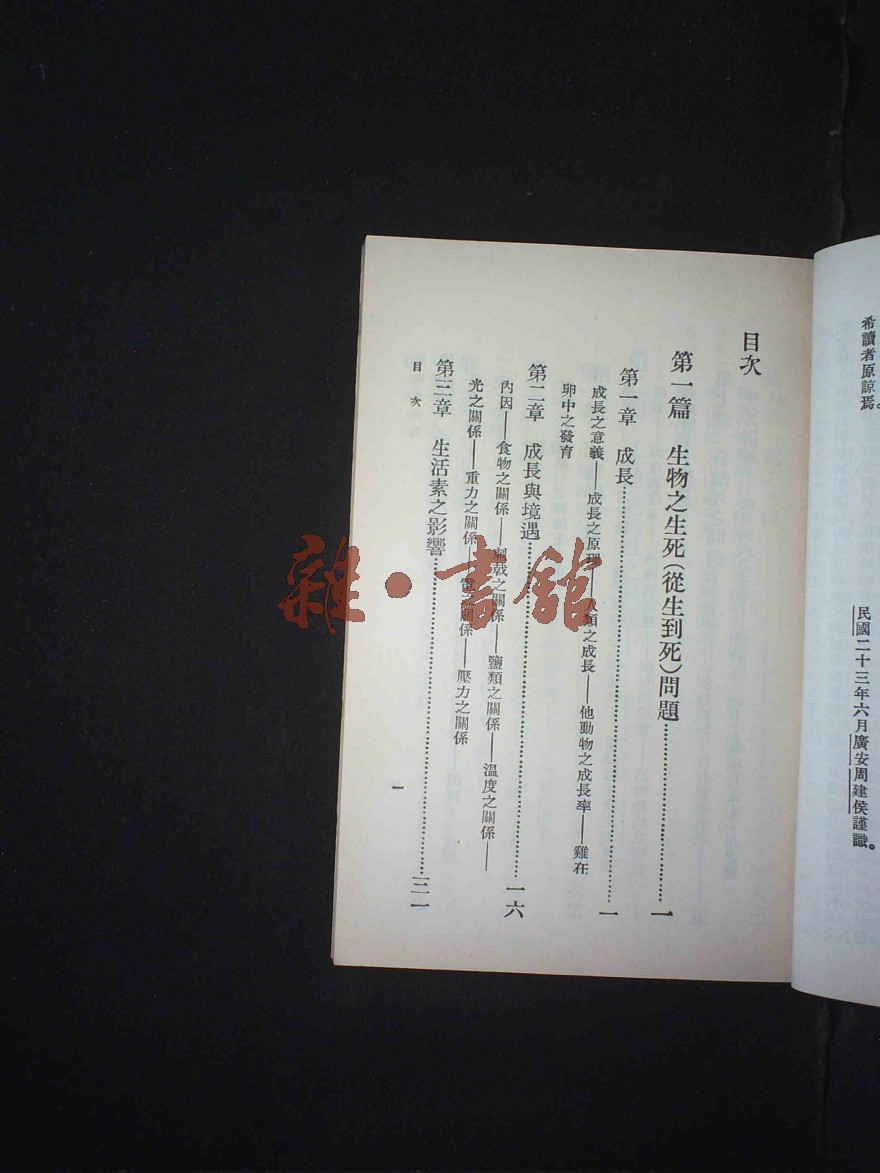 希讀者原諒焉。
民國二十三年六月廣安周建侯謹識。
目次
第一篇　生物之生死(從生到死)問題……一
第一章　成長……一
成長之意義——成長之原理——人類之成長——他動物之成長率——雞在
卵中之發育
第二章　成長與境遇……一六
內因——食物之關係——刺戟之關係——鹽類之關係——溫度之關係——
光之關係——重力之關係——關係——壓力之關係
第三章　生活素之影響……三一
目次
一
雜・書舘